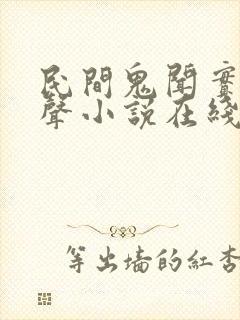 民間鬼聞實
聲小說在綫
等出墙的紅杏